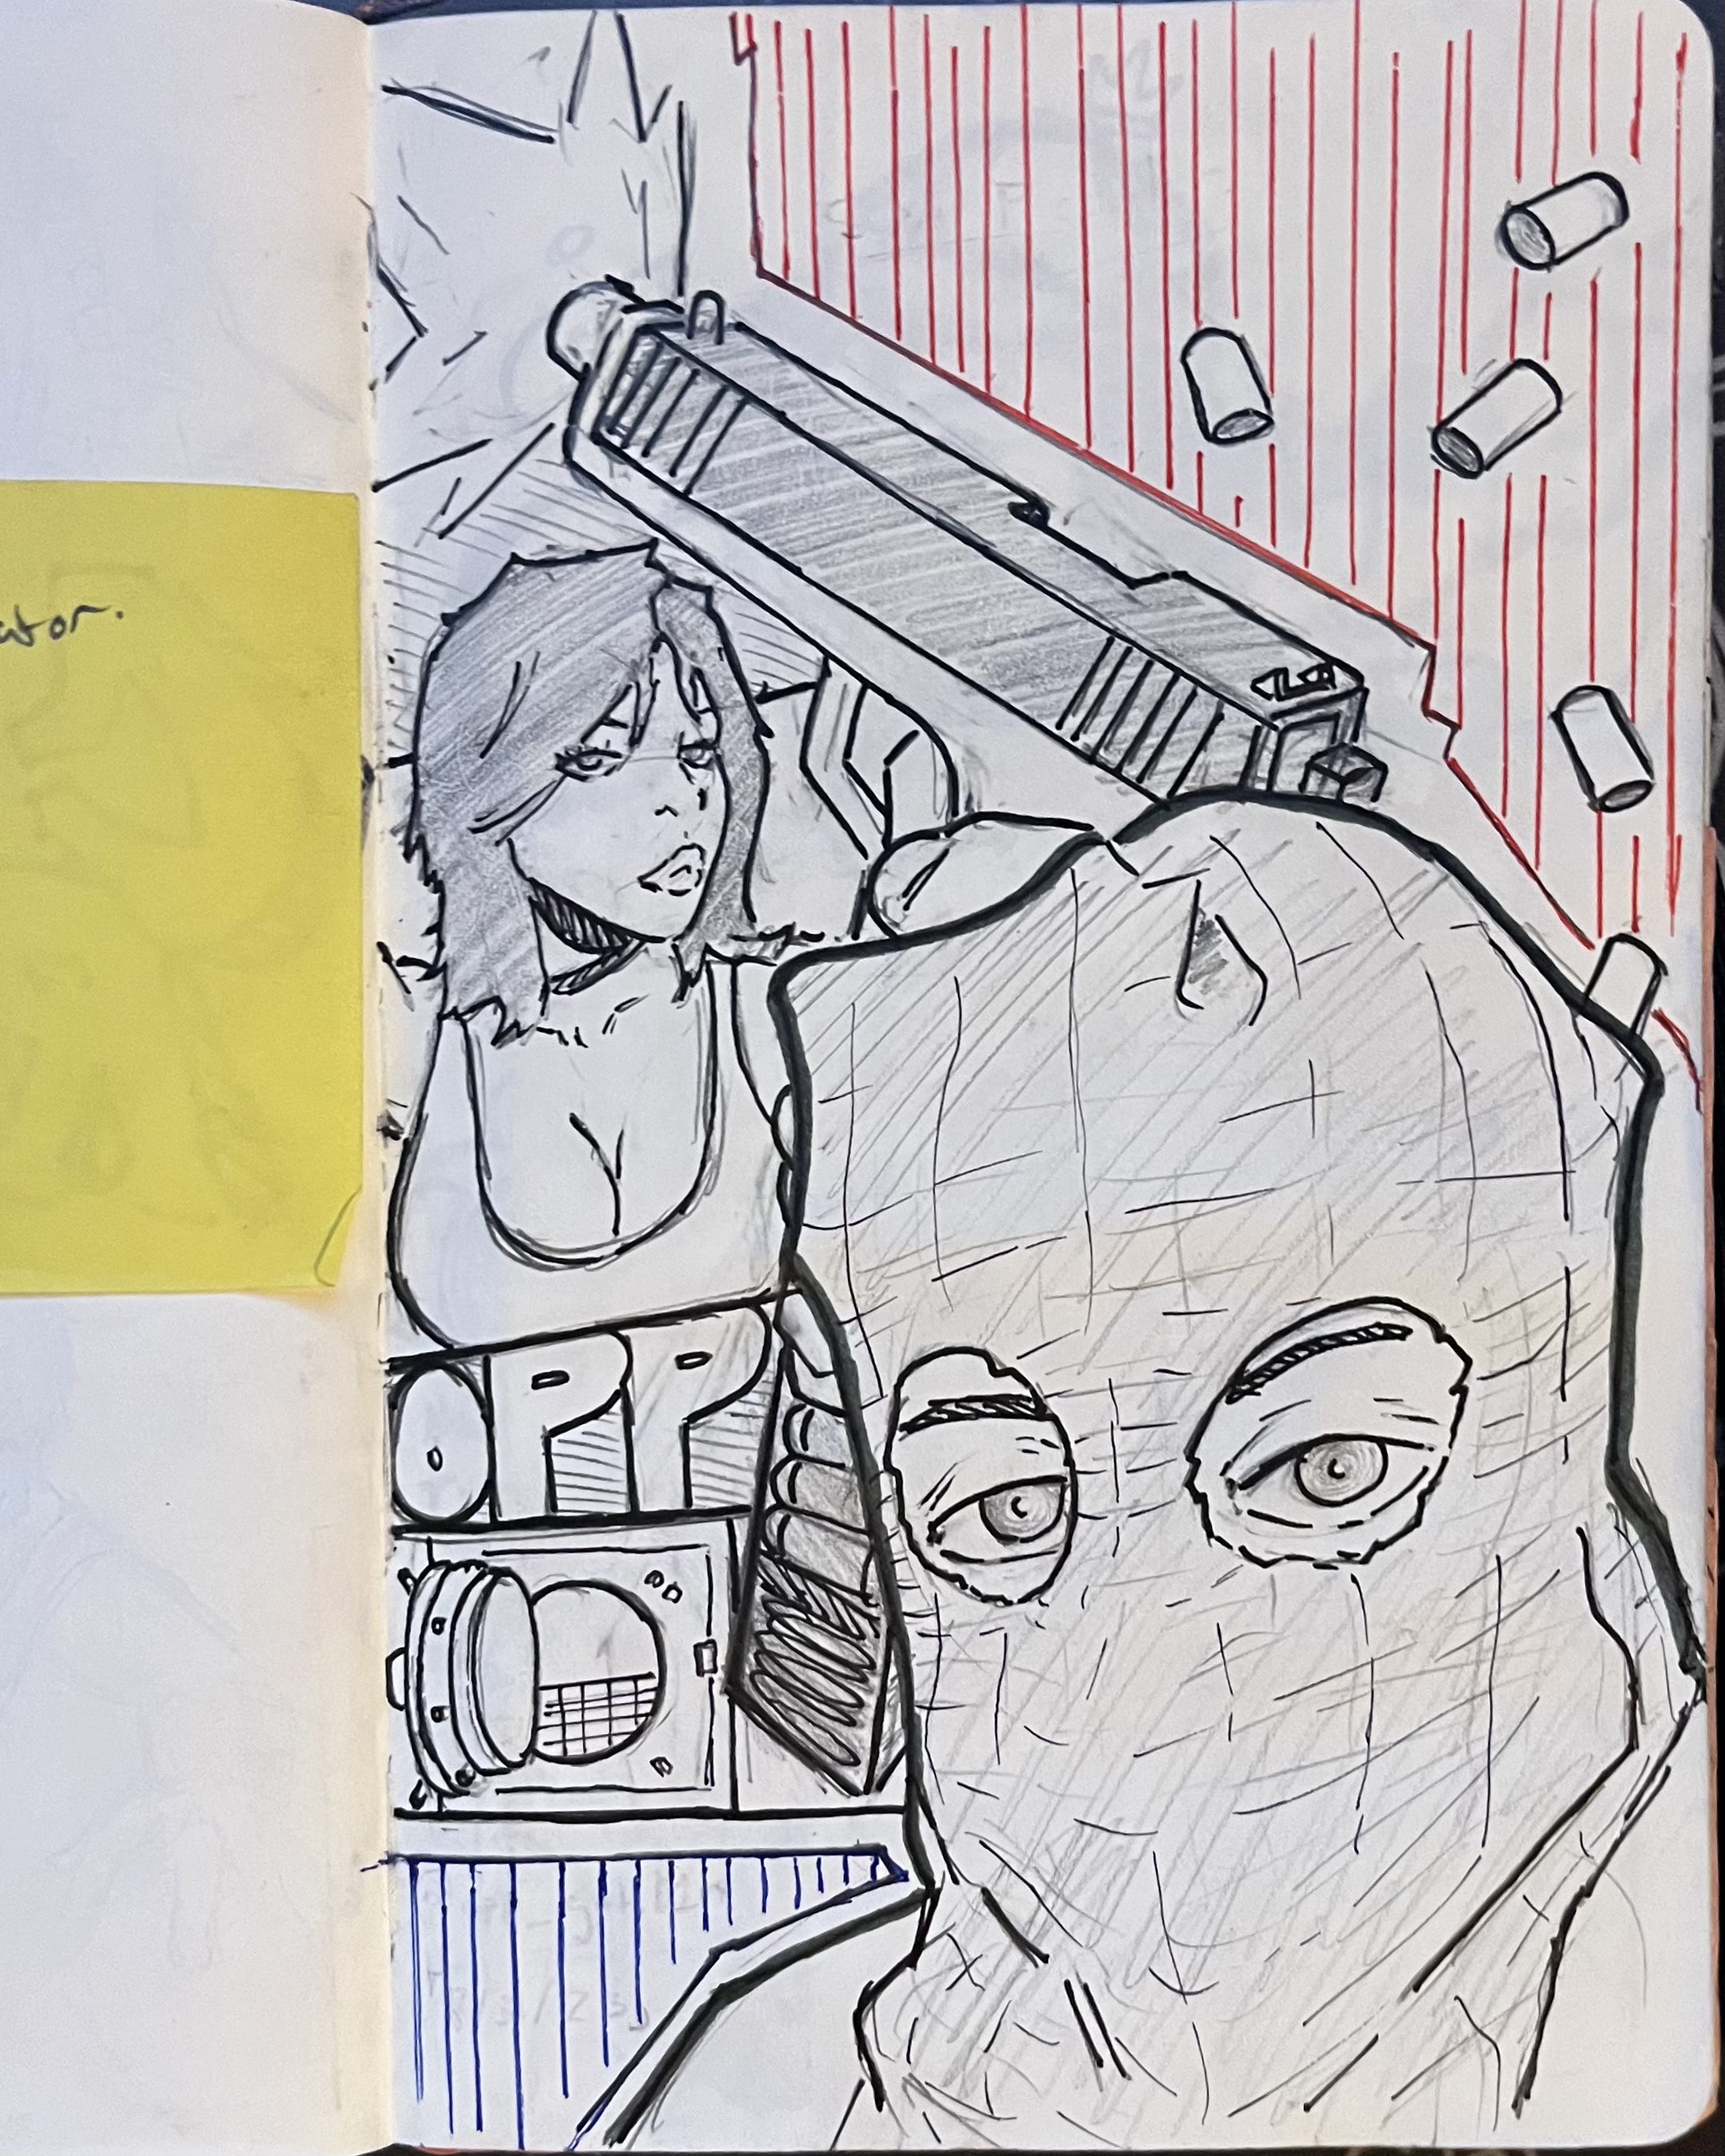 ator.
OPP